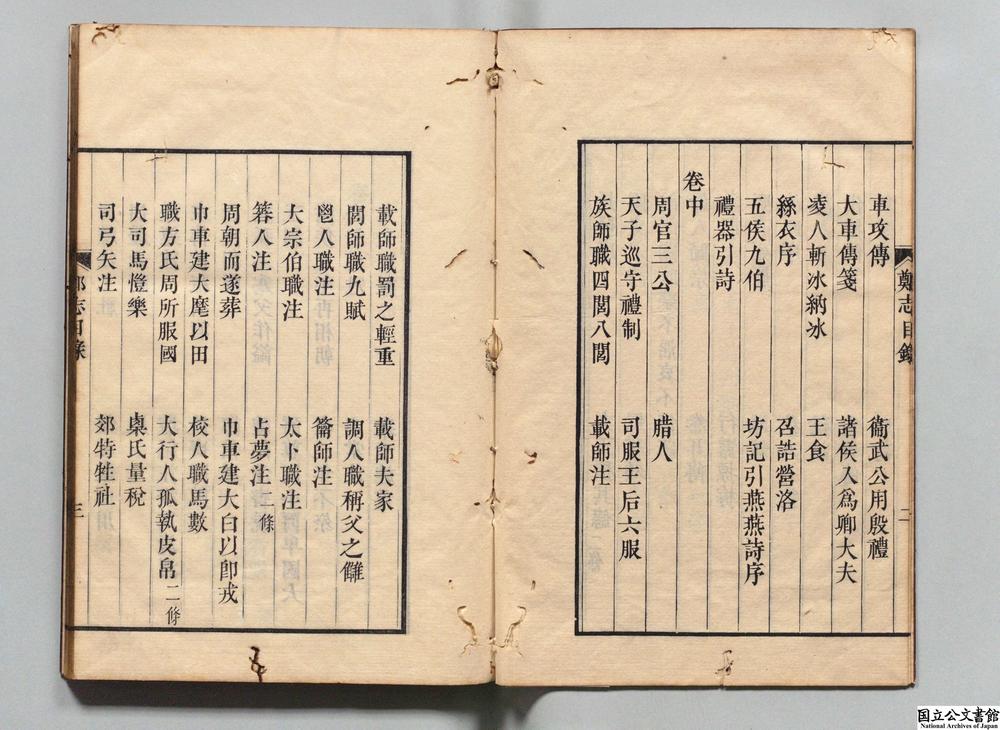 鄭志目錄 二
車攻傳 衞武公用殷禮
大車傳箋 諸侯入爲卿大夫
凌人斬冰納冰 王食
緜衣序 召誥營洛
五侯九伯 坊記引燕燕詩序
禮器引詩
卷中
周官三公 腊人
天子巡守禮制 司服王后六服
族師職四閭八閭 載師注
載師職罰之輕重 載師夫家
閭師職九賦 調人職稱父之讎
鬯人職注 籥師注
大宗伯職注 太卜職注
簭人注 占夢注二條
周朝而遂葬 巾車建大白以卽戎
巾車建大麾以田 校人職馬數
職方氏周所服國 大行人孤執皮帛二條
大司馬愷樂 㮚氏量稅
司弓矢注 郊特牲社
鄭志目錄 三
国立公文書館
National Archives of Japan